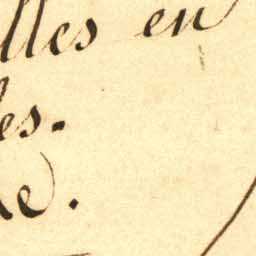 lles en
es.
e).